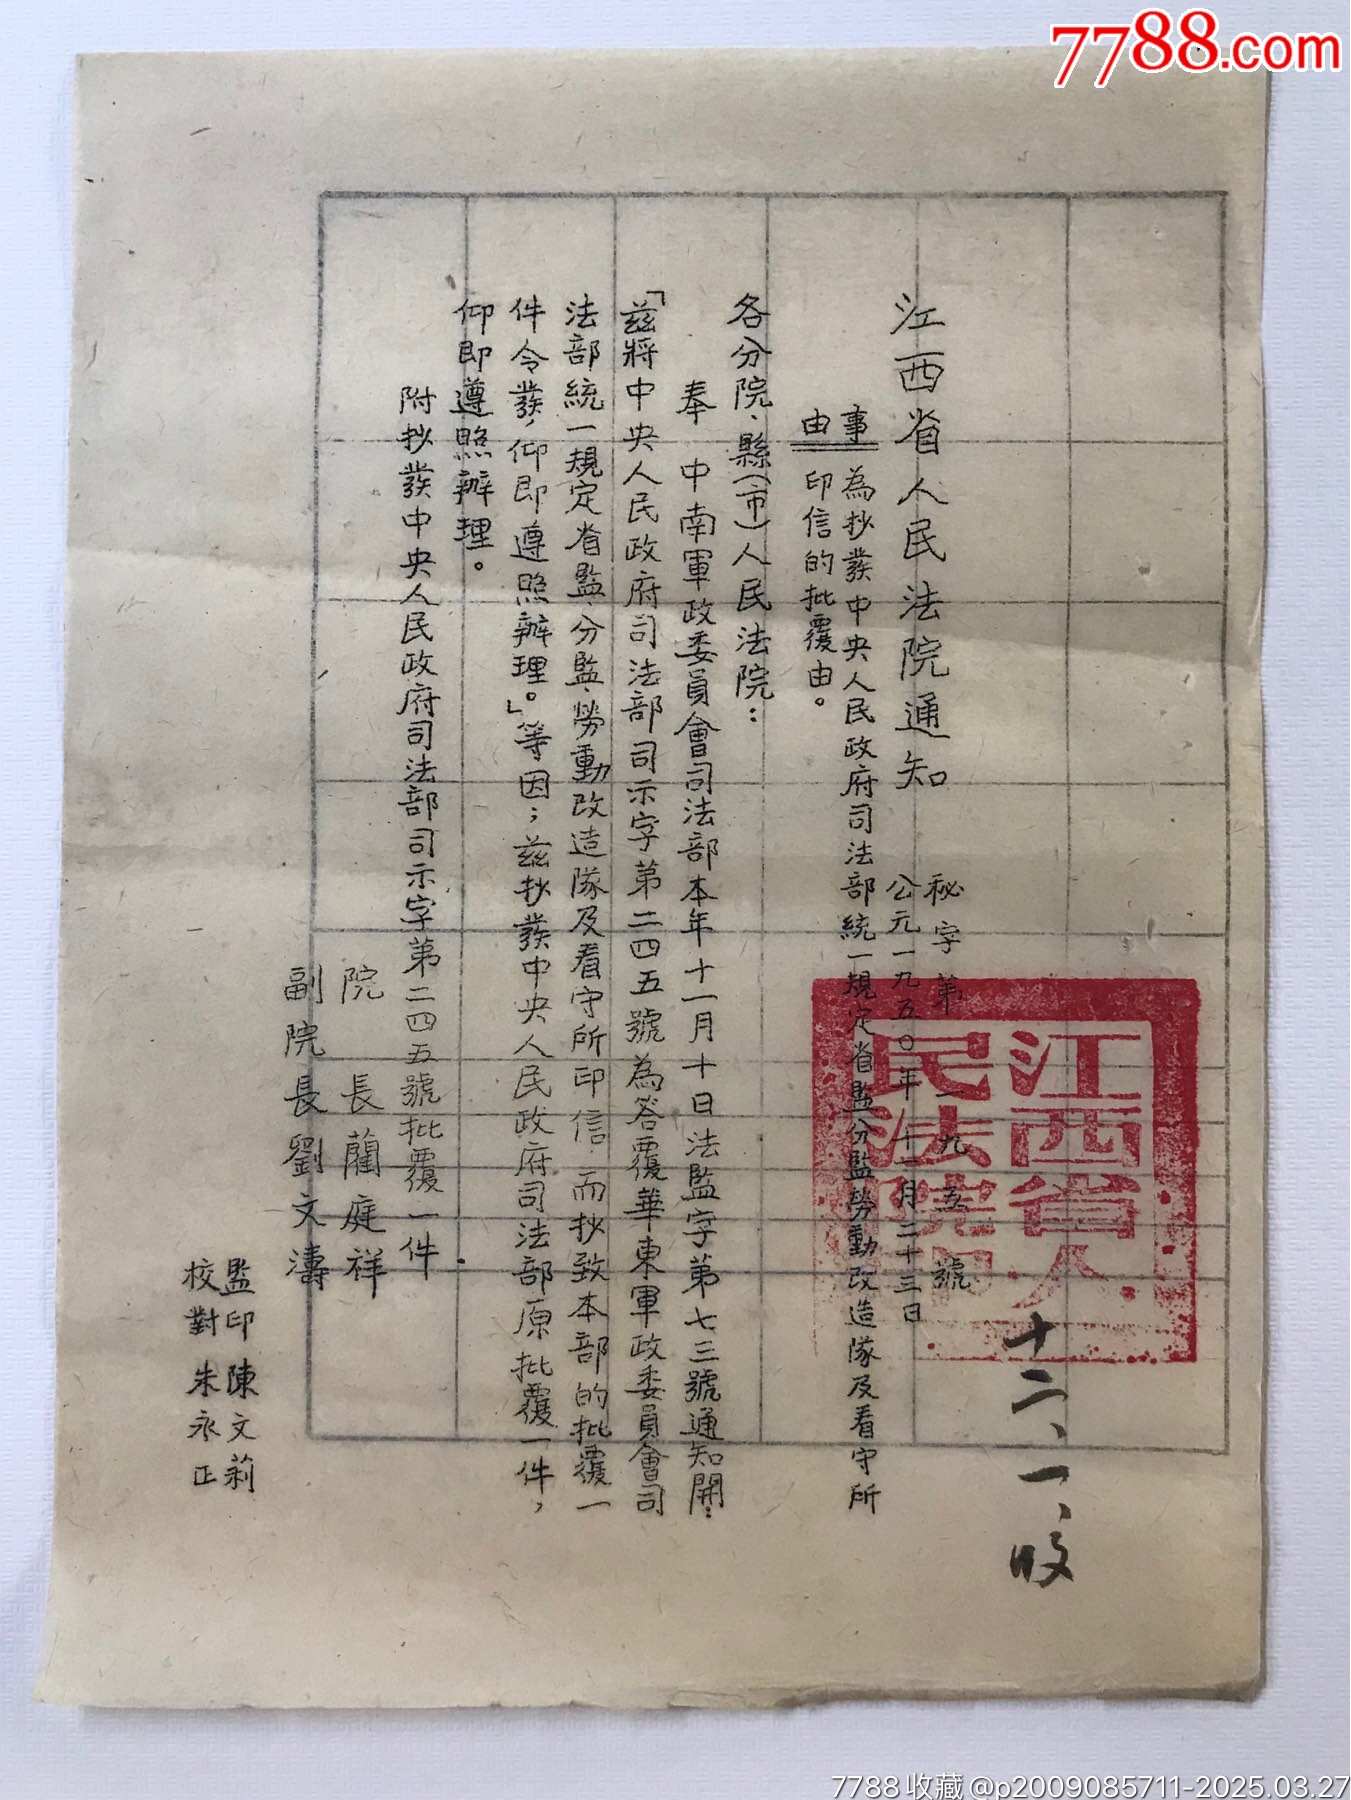 7788.com
江西省人民法院通知
秘字第一九五號
公元一九五〇年十一月二十三日
事由
為抄發中央人民政府司法部統一規定省監分監勞動改造隊及看守所
印信的批覆由。
各分院、縣(市)人民法院:
奉 中南軍政委員會司法部本年十一月十日法監字第七三號通知開:
「茲將中央人民政府司法部司示字第二四五號為答覆華東軍政委員會司
法部統一規定省監、分監、勞動改造隊及看守所印信,而抄致本部的批覆一
件令發,仰即遵照辦理。」等因;茲抄發中央人民政府司法部原批覆一件,
仰即遵照辦理。
附抄發中央人民政府司法部司示字第二四五號批覆一件
院 長 藺庭祥
副院長 劉文濤
監印 陳文莉
校對 朱永正
江西省人
民法院印
十二、一、收
7788收藏@p2009085711-2025.03.27